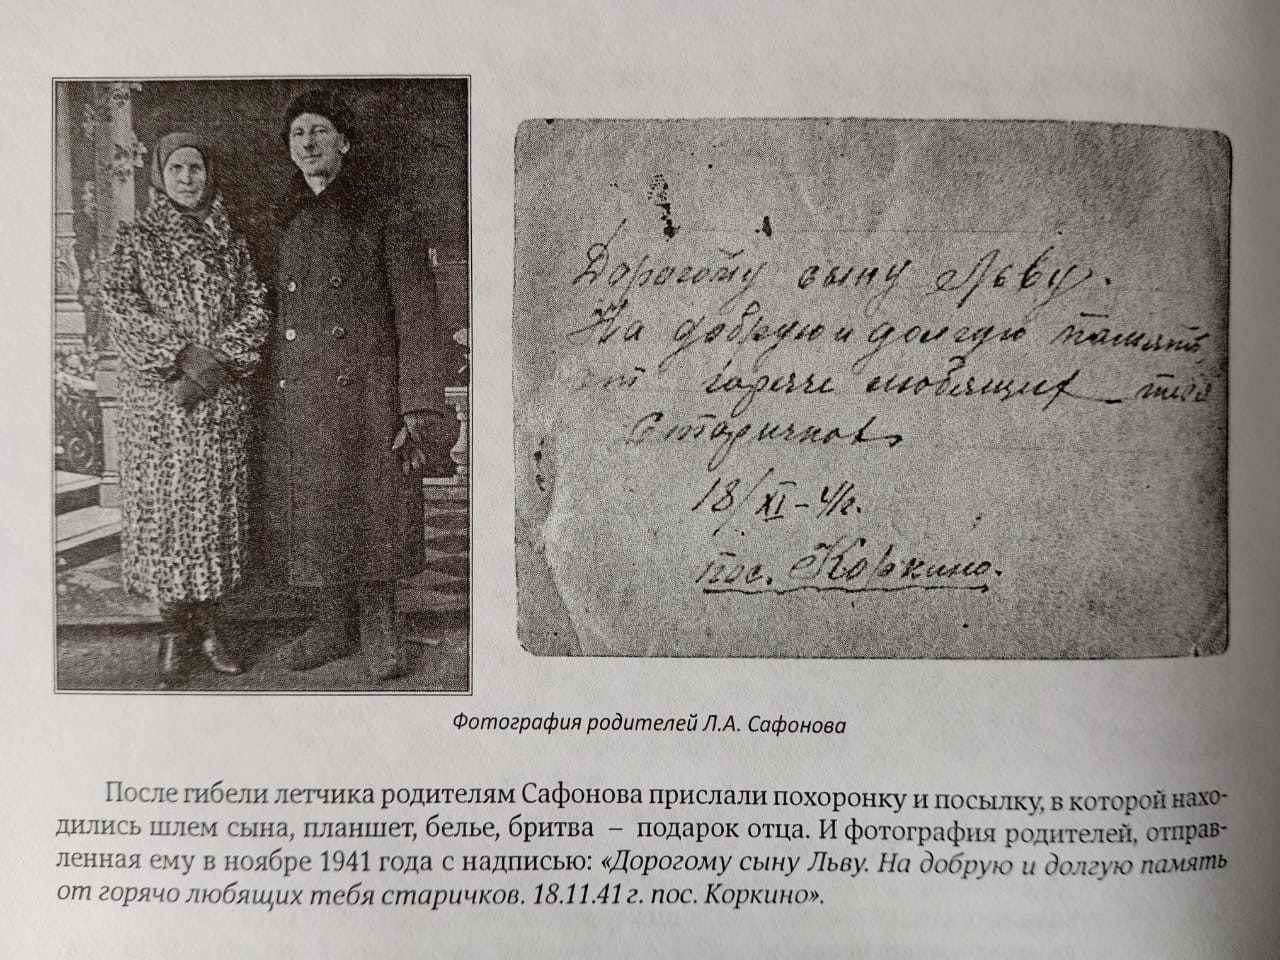 Дорогому сыну Льву.
На добрую и долгую память
от горячо любящих тебя
Старичков
18/XI-41г.
пос. Коркино.
Фотография родителей Л.А. Сафонова
После гибели летчика родителям Сафонова прислали похоронку и посылку, в которой нахо-
дились шлем сына, планшет, белье, бритва – подарок отца. И фотография родителей, отправ-
ленная ему в ноябре 1941 года с надписью: «Дорогому сыну Льву. На добрую и долгую память
от горячо любящих тебя старичков. 18.11.41 г. пос. Коркино».